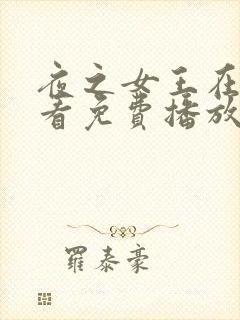 夜之女王在
看免费播放
羅泰豪